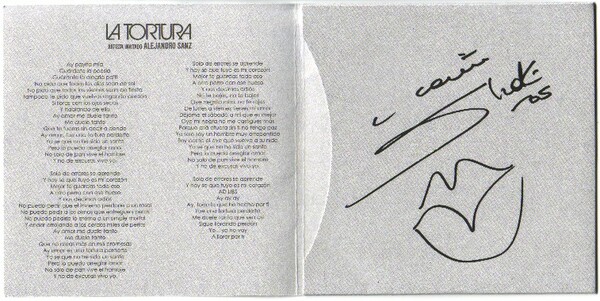 LA TORTURA
ARTISTA INVITADO ALEJANDRO SANZ
Ay payita mía
Guárdate la poesía
Guárdate la alegría pa'ti
No pido que todos los días sean de sol
No pido que todos los viernes sean de fiesta
Tampoco te pido que vuelvas rogando perdón
Si lloras con los ojos secos
Y hablando de ella
Ay amor me duele tanto
Me duele tanto
Que te fueras sin decir a donde
Ay amor, fue una tortura perderte
Yo se que no he sido un santo
Pero lo puedo arreglar amor
No solo de pan vive el hombre
Y no de excusas vivo yo.
Solo de errores se aprende
Y hoy se que tuyo es mi corazón
Mejor te guardas todo eso
A otro perro con ese hueso
Y nos decimos adiós
No puedo pedir que el invierno perdone a un rosal
No puedo pedir a los olmos que entreguen peras
No puedo pedirle lo eterno a un simple mortal
Y andar arrojando a los cerdos miles de perlas
Ay amor me duele tanto
Me duele tanto
Que no creas más en mis promesas
Ay amor es una tortura perderte
Yo se que no he sido un santo
Pero lo puedo arreglar amor
No solo de pan vive el hombre
Y no de excusas vivo yo.
Solo de errores se aprende
Y hoy se que tuyo es mi corazón
Mejor te guardas todo eso
A otro perro con ese hueso
Y nos decimos adiós
No te bajes, no te bajes
Oye negrita mira, no te rajes
De lunes a viernes tienes mi amor
Déjame el sábado a mi que es mejor
Oye mi negra no me castigues más
Porque allá afuera sin ti no tengo paz
Yo solo soy un hombre muy arrepentido
Soy como el ave que vuelve a su nido
Yo se que no he sido un santo
Y es que no estoy hecho de cartón
No solo de pan vive el hombre
Y no de excusas vivo yo.
Solo de errores se aprende
Y hoy se que tuyo es mi corazón
AD LIBS
Ay ay ay
Ay, todo lo que he hecho por ti
Fue una tortura perderte
Me duele tanto que sea así
Sigue llorando perdón
Yo... yo no voy
A llorar por ti
05